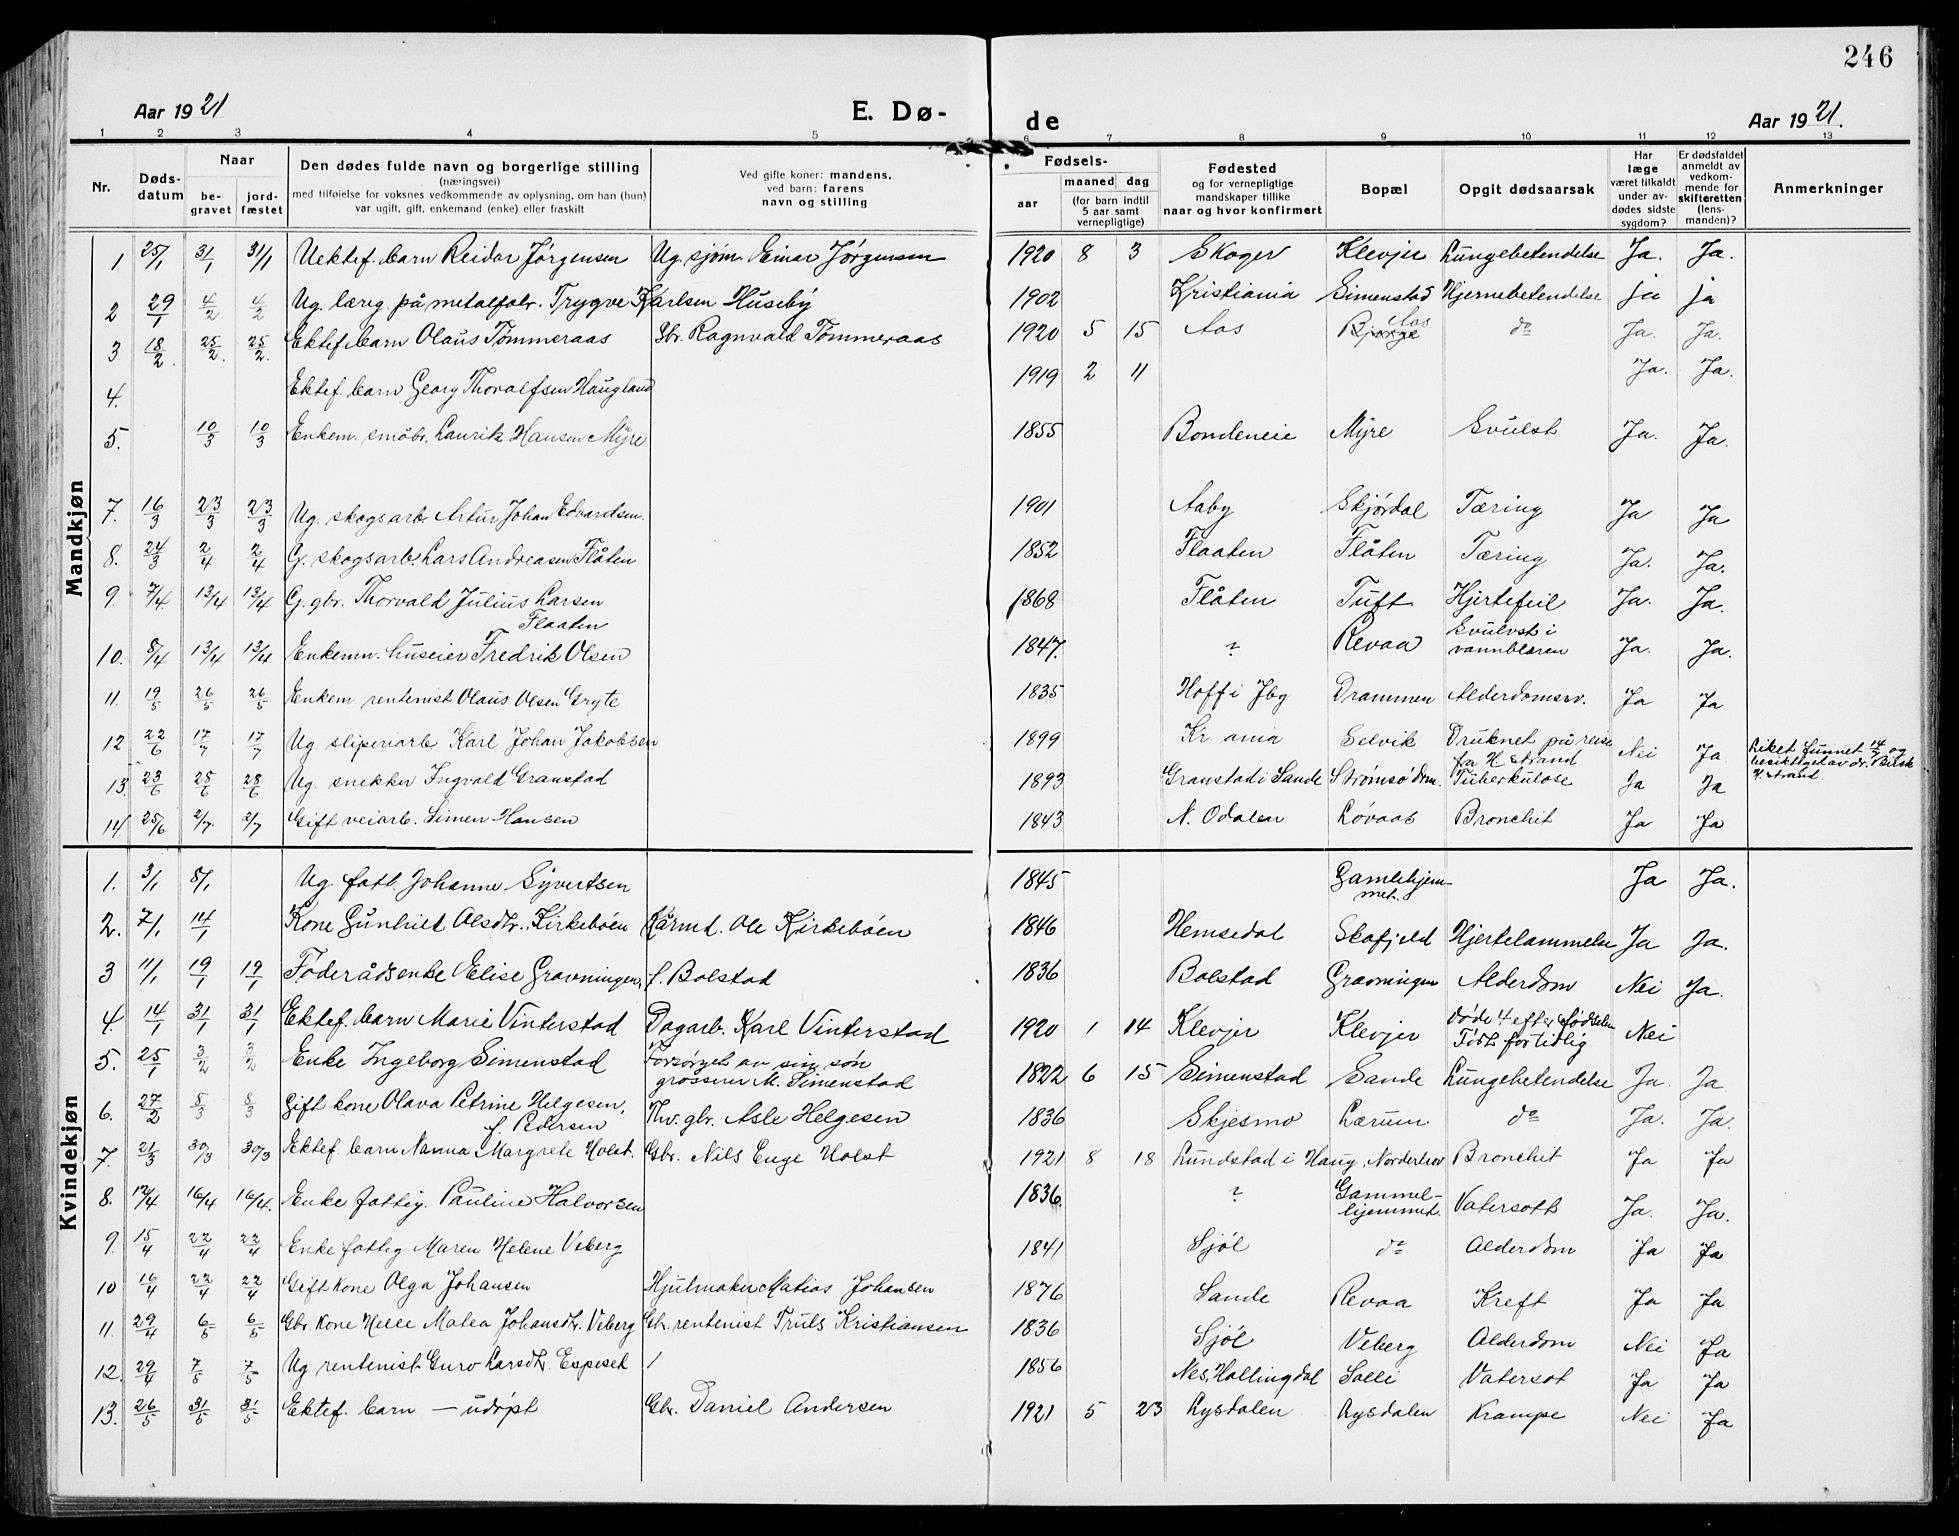 246
Aar 1921 E. Dø- de Aar 1921.
1 2 3 4 5 6 7 8 9 10 11 12 13
Nr. Døds-datum Naar be-gravet jord-fæstet Den dødes fulde navn og borgerlige stilling (næringsvei) med tilføielse for voksnes vedkommende av oplysning, om han (hun) var ugift, gift, enkemand (enke) eller fraskilt Ved gifte koner: mandens, ved barn: farens navn og stilling Fødsels- aar maaned dag (for barn indtil 5 aar samt vernepligtige) Fødested og for vernepligtige mandskaper tillike naar og hvor konfirmert Bopæl Opgit dødsaarsak Har læge været tilkaldt under av-dødes sidste sygdom? Er dødsfaldet anmeldt av vedkom-mende for skifteretten (lens-manden)? Anmerkninger
Mandkjøn
1 25/1 31/1 31/1 Uektef. barn Reidar Jørgensen Ug. sjøm. Einar Jørgensen 1920 8 3 Skoger Klevjer Lungebetendelse Ja. Ja.
2 29/1 4/2 4/2 Ug. læreg. på metalfabr. Trygve Karlsen Huseby 1902 Kristiania Simenstad Hjernebetendelse ja ja
3 18/2 25/2 25/2 Ektef. barn Olaus Tømmeraas Gbr. Ragnvald Tømmeraas 1920 5 15 Aas Bjørge Aas do Ja. Ja.
4. Ektef. barn Georg Thoralfsen Haugland 1919 2 11 Ja. Ja.
5. 10/3 10/3 Enkem. småbr. Laurits Hansen Myre 1855 Bondeneie Myre Svulst Ja. Ja.
7. 16/3 23/3 23/3 Ug. skogsarb. Artur Johan Edvardsen. 1901 Aaby Skjørdal Tæring Ja Ja
8. 24/3 2/4 2/4 G. skogsarb. Lars Andreasen Flåten 1852 Flaaten Flåten Tæring Ja. Ja.
9. 7/4 13/4 13/4 G. gbr. Thorvald Julius Larsen Flaaten 1868 Flåten Tuft Hjertefeil Ja. Ja.
10. 8/4 13/4 13/4 Enkemn. huseier Fredrik Olsen 1847. ? Revaa Svulst i vannblæren Ja. Ja.
11. 19/5 26/5 26/5 Enkem. rentenist Olaus Olsen Gryte 1835 Hoff i Jbg Drammen Alderdomssv. Ja Ja
12 22/6 17/7 17/7 Ug sliperiarb Karl Johan Jakobsen 1899 Kr.ania Selvik Druknet på reise fra H strand Nei Ja Liket funnet 14/7 og besiktiget av dr. H. strand
13 23/6 28/6 28/6 Ug. snekker Ingvald Granstad 1893 Granstad i Sande Strømsø Drm. Tuberkulose Ja Ja
14 25/6 2/7. 2/7 Gift veiarb. Simen Hansen 1843 N. Odalen Løvaas Bronchit Ja Ja
Kvindekjøn
1. 3/1 8/1 Ug. fatt. Johanne Syvertsen 1845 Gamlehjem-met. Ja Ja.
2. 7/1 14/1 Kone Gunhild Olsdtr. Kirkebøen Kårmd. Ole Kirkebøen 1846 Hemsedal Skafjeld Hjertelammelse Ja Ja.
3 11/1 19/1 19/1 Føderådsenke Elise Gravningen, f. Bolstad 1836 Bolstad Gravningen Alderdom Nei Ja.
4. 14/1 31/1 31/1 Ektef. barn Marie Vinterstad Dagarb. Karl Vinterstad 1920 1 14 Klevjer Klevjer døde 4 efter fødselen Født for tidlig Nei
5. 25/1 3/2 3/2 Enke Ingeborg Simenstad Forsørget av sin søn grosserer M. Simenstad 1822 6 15 Simenstad Sande Lungebetendelse Ja. Ja
6. 27/2 8/3 8/3 Gift kone Olava Petrine Helgesen, f. Pedersen Fhv. gbr. Asle Helgesen 1836 Skjesmo Lærum do Ja. Ja.
7. 21/3 30/3 30/3 Ektef. barn Nanna Margrete Holst. Gbr. Nils Enge Holst 1921 8 18 Lundstad i Haug, Norderhov Bronchit Ja Ja
8. 12/4 16/4 16/4. Enke fattig. Pauline Halvorsen 1836. ? Gammel-hjemmet. Vatersott Ja. Ja.
9. 15/4 22/4 22/4 Enke fattig Maren Helene Veberg 1841 Sjøl do Alderdom Ja Ja
10 16/4 22/4 22/4 Gift kone Olga Johansen Hjulmaker Matias Johansen 1876 Sande Revaa Kreft Ja Ja
11. 29/4 6/5 6/5 Gbr. kone Helle Malea Johansdtr. Veberg Gbr. rentenist Truls Kristiansen 1836 Sjøl Veberg Alderdom Nei Ja
12. 29/4 7/5 7/5 Ug rentenist Guro Larsdtr. Espeset / 1856 Nes, Hallingdal Solli Vatersot Ja Ja
13. 26/5 31/5 31/5 Ektef. barn – udøpt Gbr. Daniel Andersen 1921 5 23 Lysdalen Lysdalen Krampe Nei Ja